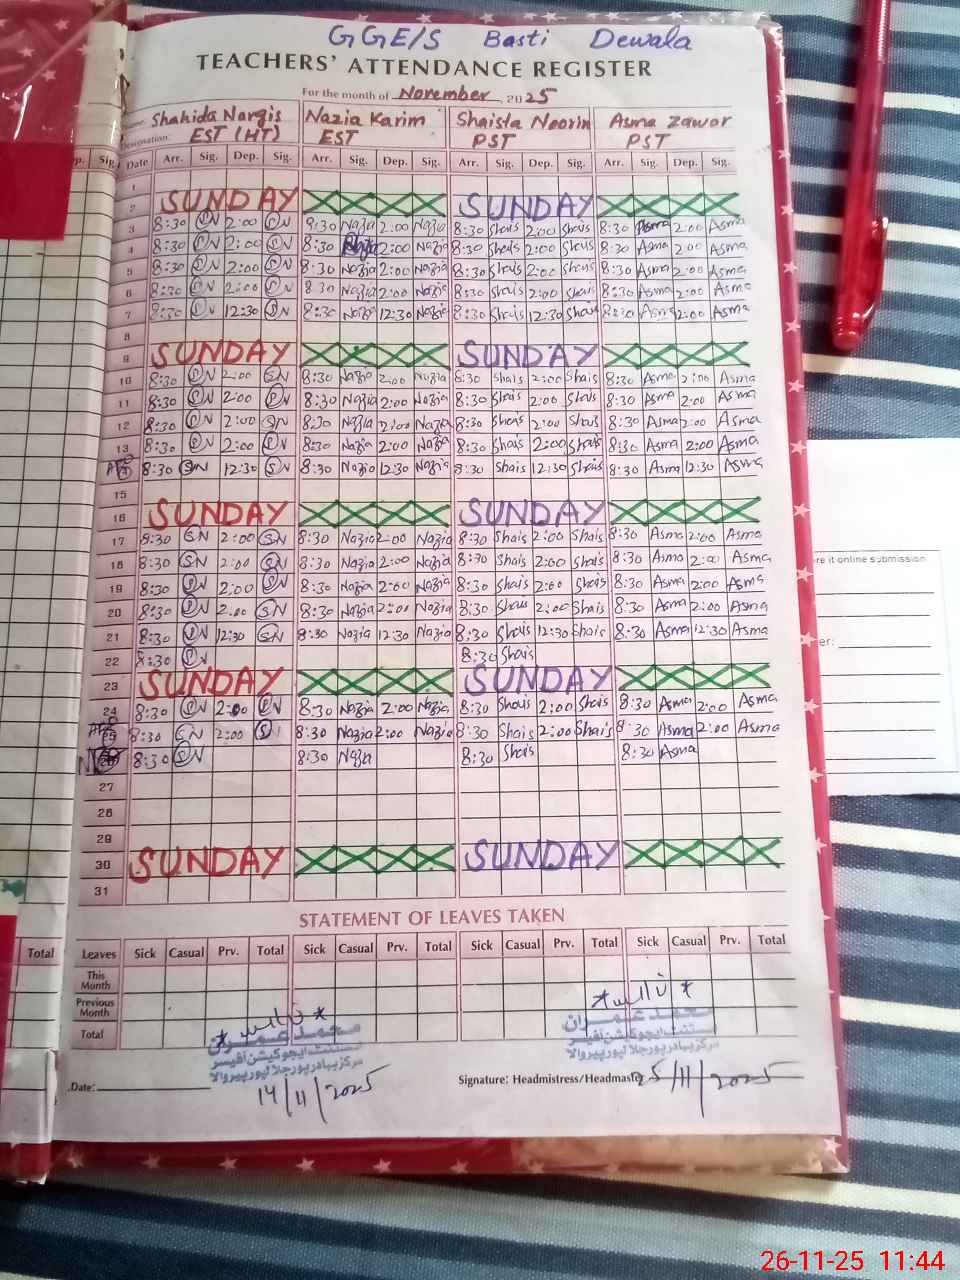 GGE/S Basti Dewala
TEACHERS' ATTENDANCE REGISTER
For the month of November, 2025
Shahida Nargis Nazia Karim Shaista Noorin Asma Zawar
Designation: EST (HT) EST PST PST
Date Arr. Sig. Dep. Sig. Arr. Sig. Dep. Sig. Arr. Sig. Dep. Sig. Arr. Sig. Dep. Sig.
1
2 SUNDAY SUNDAY
3 8:30 SN 2:00 SN 8:30 Nazia 2:00 Nazia 8:30 Shais 2:00 Shais 8:30 Asma 2:00 Asma
4 8:30 SN 2:00 SN 8:30 Nazia 2:00 Nazia 8:30 Shais 2:00 Shais 8:30 Asma 2:00 Asma
5 8:30 SN 2:00 SN 8:30 Nazia 2:00 Nazia 8:30 Shais 2:00 Shais 8:30 Asma 2:00 Asma
6 8:30 SN 2:00 SN 8:30 Nazia 2:00 Nazia 8:30 Shais 2:00 Shais 8:30 Asma 2:00 Asma
7 8:30 SN 12:30 SN 8:30 Nazia 12:30 Nazia 8:30 Shais 12:30 Shais 8:30 Asma 2:00 Asma
8
9 SUNDAY SUNDAY
10 8:30 SN 2:00 SN 8:30 Nazia 2:00 Nazia 8:30 Shais 2:00 Shais 8:30 Asma 2:00 Asma
11 8:30 SN 2:00 SN 8:30 Nazia 2:00 Nazia 8:30 Shais 2:00 Shais 8:30 Asma 2:00 Asma
12 8:30 SN 2:00 SN 8:30 Nazia 2:00 Nazia 8:30 Shais 2:00 Shais 8:30 Asma 2:00 Asma
13 8:30 SN 2:00 SN 8:30 Nazia 2:00 Nazia 8:30 Shais 2:00 Shais 8:30 Asma 2:00 Asma
8:30 SN 12:30 SN 8:30 Nazia 12:30 Nazia 8:30 Shais 12:30 Shais 8:30 Asma 12:30 Asma
15
16 SUNDAY SUNDAY
17 8:30 SN 2:00 SN 8:30 Nazia 2:00 Nazia 8:30 Shais 2:00 Shais 8:30 Asma 2:00 Asma
18 8:30 SN 2:00 SN 8:30 Nazia 2:00 Nazia 8:30 Shais 2:00 Shais 8:30 Asma 2:00 Asma
19 8:30 SN 2:00 SN 8:30 Nazia 2:00 Nazia 8:30 Shais 2:00 Shais 8:30 Asma 2:00 Asma
20 8:30 SN 2:00 SN 8:30 Nazia 2:00 Nazia 8:30 Shais 2:00 Shais 8:30 Asma 2:00 Asma
21 8:30 SN 12:30 SN 8:30 Nazia 12:30 Nazia 8:30 Shais 12:30 Shais 8:30 Asma 12:30 Asma
22 8:30 SN 8:30 Shais
23 SUNDAY SUNDAY
24 8:30 SN 2:00 SN 8:30 Nazia 2:00 Nazia 8:30 Shais 2:00 Shais 8:30 Asma 2:00 Asma
25 8:30 SN 2:00 S 8:30 Nazia 2:00 Nazia 8:30 Shais 2:00 Shais 8:30 Asma 2:00 Asma
8:30 SN 8:30 Nazia 8:30 Shais 8:30 Asma
27
28
29
30 SUNDAY SUNDAY
31
STATEMENT OF LEAVES TAKEN
Leaves Sick Casual Prv. Total Sick Casual Prv. Total Sick Casual Prv. Total Sick Casual Prv. Total
This Month
Previous Month
Total
محمد عمران محمد عمران
اسسٹنٹ ایجوکیشن آفیسر اسسٹنٹ ایجوکیشن آفیسر
مرکز بہادرپور جلالپور پیروالا مرکز بہادرپور جلالپور پیروالا
Date: 14/11/2025 Signature: Headmistress/Headmaster 25/11/2025
Total
re it online submission
er:
26-11-25 11:44